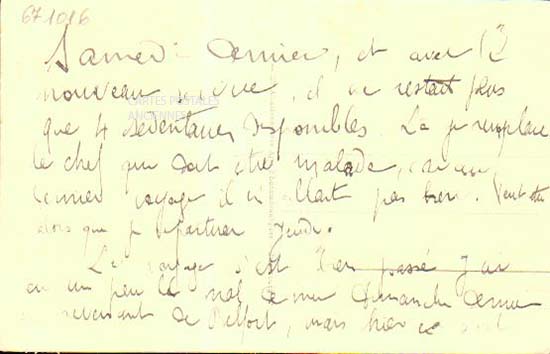 671016
Samedi dernier, et avec
nouveau, il ne restait plus
CARTES POSTALES
ANCIENNES
que 4 sédentaires disponibles. Là je remplace
le chef qui doit être malade, car au
dernier voyage il n'allait pas bien. Peut être
alors que je repartirai jeudi.
Le voyage s'est bien passé j'ai
eu un peu le mal de mer Dimanche dernier
en revenant de Belfort, mais hier